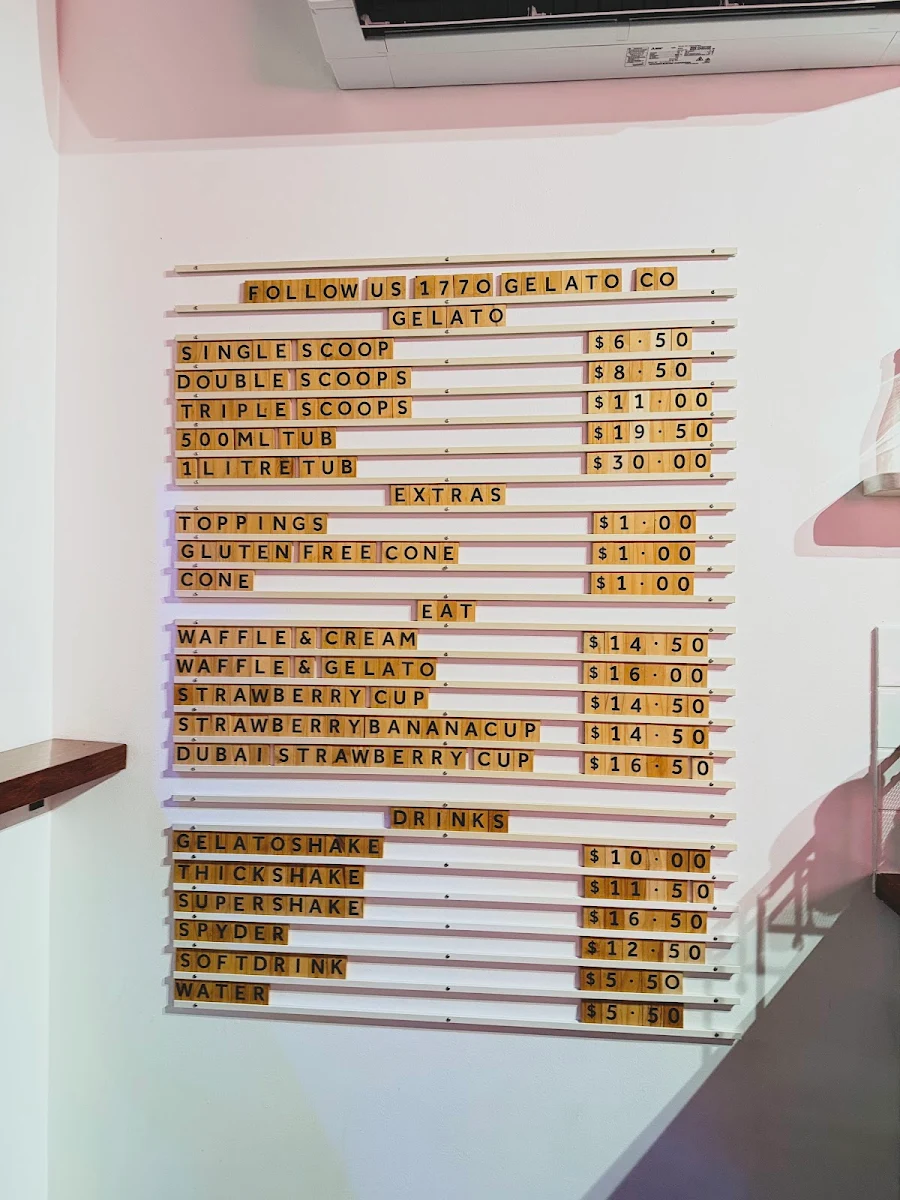 FOLLOW US 1770 GELATO CO
GELATO
SINGLE SCOOP $6.50
DOUBLE SCOOPS $8.50
TRIPLE SCOOPS $11.00
500ML TUB $19.50
1 LITRE TUB $30.00
EXTRAS
TOPPINGS $1.00
GLUTEN FREE CONE $1.00
CONE $1.00
EAT
WAFFLE & CREAM $14.50
WAFFLE & GELATO $16.00
STRAWBERRY CUP $14.50
STRAWBERRY BANANA CUP $14.50
DUBAI STRAWBERRY CUP $16.50
DRINKS
GELATOSHAKE $10.00
THICKSHAKE $11.50
SUPERSHAKE $16.50
SPYDER $12.50
SOFTDRINK $5.50
WATER $5.50